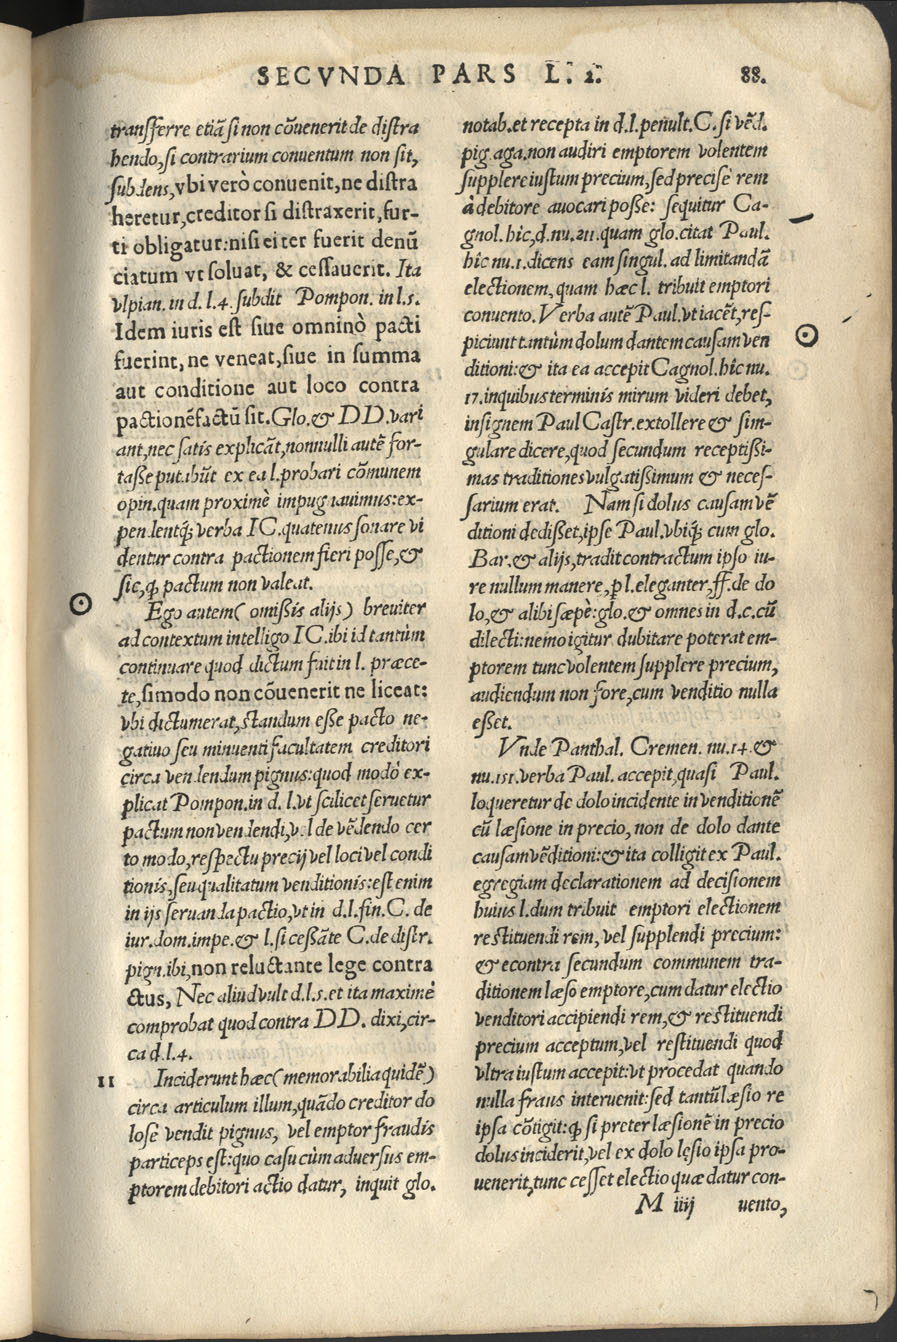 SECVNDA PARS L. 2.
88.
transferre etiã si non cõuenerit de distra
hendo, si contrarium conuentum non sit,
subdens, vbi verò conuenit, ne distra
heretur, creditor si distraxerit, fur-
ti obligatur: nisi ei ter fuerit denũ
ciatum vt soluat, & cessauerit. Ita
vlpian. in d. l. 4. subdit Pompon. in l. 5.
Idem iuris est siue omninò pacti
fuerint, ne veneat, siue in summa
aut conditione aut loco contra
pactionẽ factũ sit. Glo. & DD. vari
ant, nec satis explicãt, nonnulli autẽ for-
tasse putabũt ex ea l. probari cõmunem
opin. quam proximè impugnauimus: ex-
pendentq́; verba IC. quatenus sonare vi
dentur contra pactionem fieri posse, &
sic, ꝙ pactum non valeat.
Ego autem (omissis alijs) breuiter
ad contextum intelligo IC. ibi id tantùm
continuare quod dictum fuit in l. præce-
te, si modo non cõuenerit ne liceat:
vbi dictum erat, standum esse pacto ne-
gatiuo seu minuenti facultatem creditori
circa vendendum pignus: quod modò ex-
plicat Pompon. in d. l. vt scilicet seruetur
pactum non vendendi, vel de vẽdendo cer
to modo, respectu precij vel loci vel condi
tionis, seu qualitatum venditionis: est enim
in ijs seruanda pactio, vt in d. l. fin. C. de
iur. dom. impe. & l. si cessãte C. de distr.
pign. ibi, non reluctante lege contra
ctus, Nec aliud vult d. l. 5. et ita maximè
comprobat quod contra DD. dixi, cir-
ca d. l. 4.
11 Inciderunt hæc (memorabilia quidẽ)
circa articulum illum, quãdo creditor do
losè vendit pignus, vel emptor fraudis
particeps est: quo casu cùm aduersus em-
ptorem debitori actio datur, inquit glo.
notab. et recepta in d. l. penult. C. si vẽd.
pig. aga. non audiri emptorem volentem
supplere iustum precium, sed precisè rem
à debitore auocari posse: sequitur Ca-
gnol. hic, d. nu. 211. quam glo. citat Paul.
hîc nu. 1. dicens eam singul. ad limitandã
electionem, quam hæc l. tribuit emptori
conuento. Verba autẽ Paul. vt iacẽt, res-
piciunt tantùm dolum dantem causam ven
ditioni: & ita ea accepit Cagnol. hîc nu.
17. in quibus terminis mirum videri debet,
insignem Paul Castr. extollere & sin-
gulare dicere, quod secundum receptissi-
mas traditiones vulgatissimum & neces-
sarium erat. Nam si dolus causam vẽ
ditioni dedisset, ipse Paul. vbiq́; cum glo.
Bar. & alijs, tradit contractum ipso iu-
re nullum manere, ꝑ l. eleganter, ff. de do
lo, & alibi sæpè: glo. & omnes in d. c. cũ
dilecti: nemo igitur dubitare poterat em-
ptorem tunc volentem supplere precium,
audiendum non fore, cum venditio nulla
esset.
Vnde Panthal. Cremen. nu. 14. &
nu. 151. verba Paul. accepit, quasi Paul.
loqueretur de dolo incidente in venditionẽ
cũ læsione in precio, non de dolo dante
causam vẽditioni: & ita colligit ex Paul.
egregiam declarationem ad decisionem
huius l. dum tribuit emptori electionem
restituendi rem, vel supplendi precium:
& econtra secundum communem tra-
ditionem læso emptore, cum datur electio
venditori accipiendi rem, & restituendi
precium acceptum, vel restituendi quod
vltra iustum accepit: vt procedat quando
nulla fraus interuenit: sed tantũ læsio re
ipsa cõtigit: ꝙ si preter læsionẽ in precio
dolus inciderit, vel ex dolo lęsio ipsa pro-
uenerit, tunc cesset electio quæ datur con-
M iiij uento,